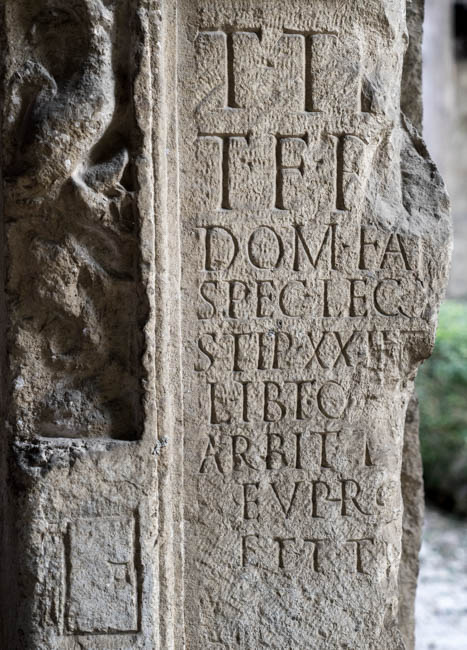 T·T
T·F·F
DOM·FA
SPEC·LEG
STIP·XXII
LIBTO
ARBIT
EVPR